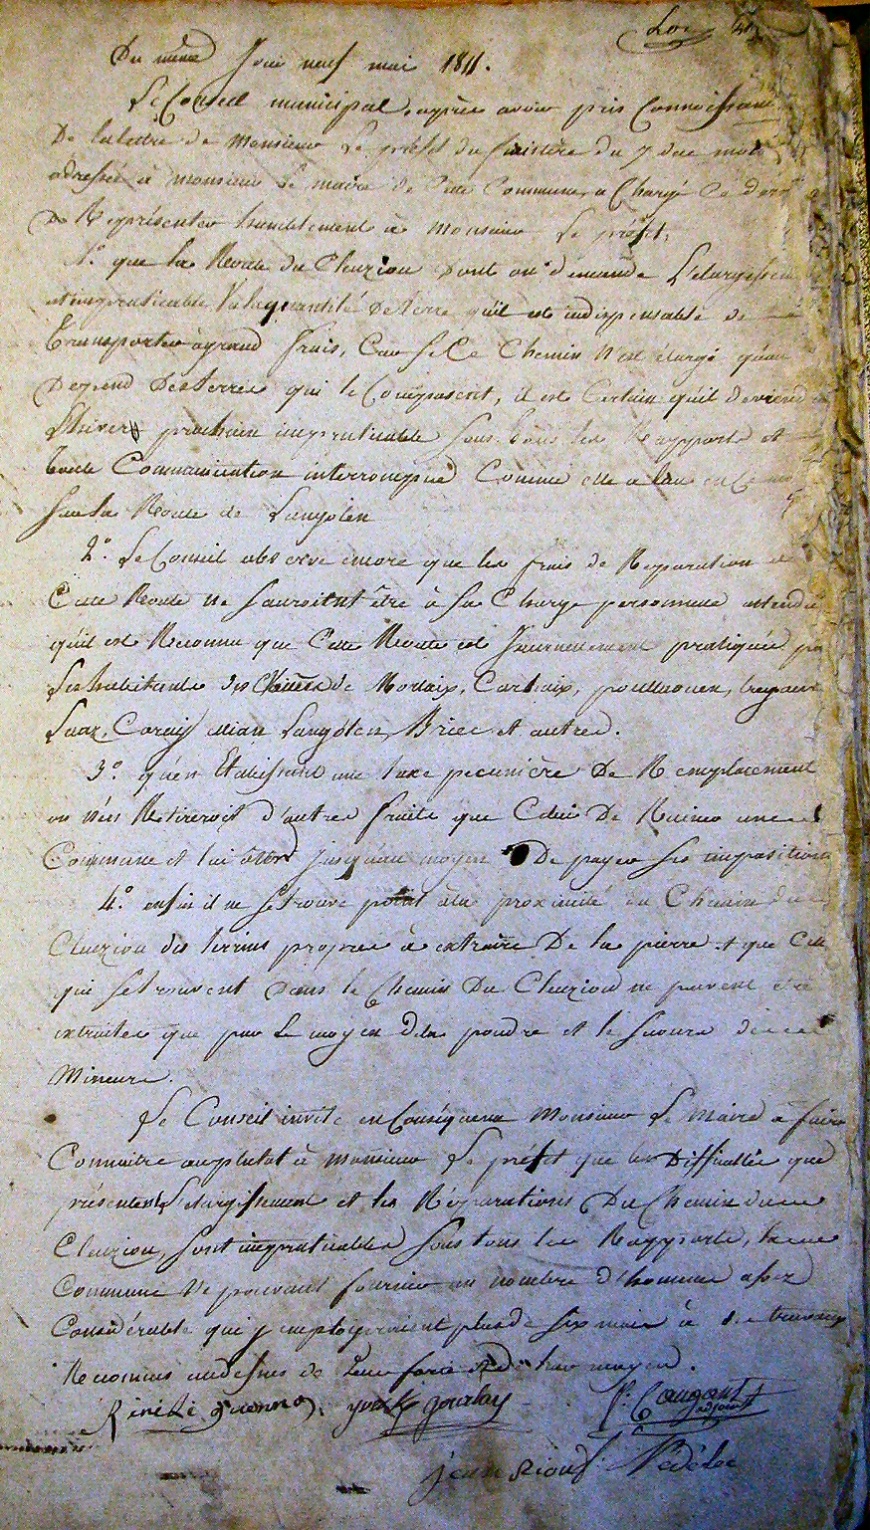 Du même Jour neuf mai 1811.
Le Conseil municipal, après avoir pris Connoissance
De la lettre de Monsieur Le préfet du finistère du 7 due mois
adressée à monsieur Le maire de Cette Commune, a Chargé Ce
De Représenter humblement à Monsieur Le préfet,
1.° que la Route du Cleuziou Dont on demande L'elargissem
est impraticable Vu la quantité De terre qu'il est indispensable de
Transporter à grand frais, Car si Ce Chemin n'est elargi qu'au
Depend Des terres qui le Composent, il est Certain qu'il deviend
L'hiver prochain impraticable sous tous les Rapports et
toute Communication interrompue Comme elle a lieu en Ce
Sur la Route de Langolen
2.° Le Conseil observe encore que les frais de Reparation de
Cette Route ne sauroient être à sa Charge personnelle attendu
qu'il est Reconnu que Cette Route est Journellement pratiquée pa
Les habitants des de Morlaix, Carhaix, poullaouen,
Laz, Coray, Langolen, Briec et autres.
3.° qu'en Etablissant une taxe pecunière De Remplacement
on n'en Retireroit d'autres fruits que Celui De Ruiner une
Commune et lui ôter Jusqu'au moyen De payer ses impositions
4.° enfin il ne se trouve point à la proximité du Chemin du
Cleuziou des terrins propres à extraire De la pierre et que Celle
qui se trouvent Dans le Chemin Du Cleuziou ne peuvent être
extraites que par Le moyen de la poudre et le secours de
Mineurs.
Le Conseil invite en Conséquence Monsieur Le Maire à faire
Connoitre au plutot à Monsieur Le préfet que les Difficultés que
présentent L'elargissement et les Réparations Du Chemin du
Cleuziou, sont impraticables sous tous les Rapports, la
Commune ne pouvant fournir un nombre d'hommes assez
Considérable qui y employeroient plus de six mois à de travaux
Reconnus audessus de Leur force et de Leur moyen.
René Le guenno, yves gourlay P. Caugant adjoint
jean Riou Nédélec